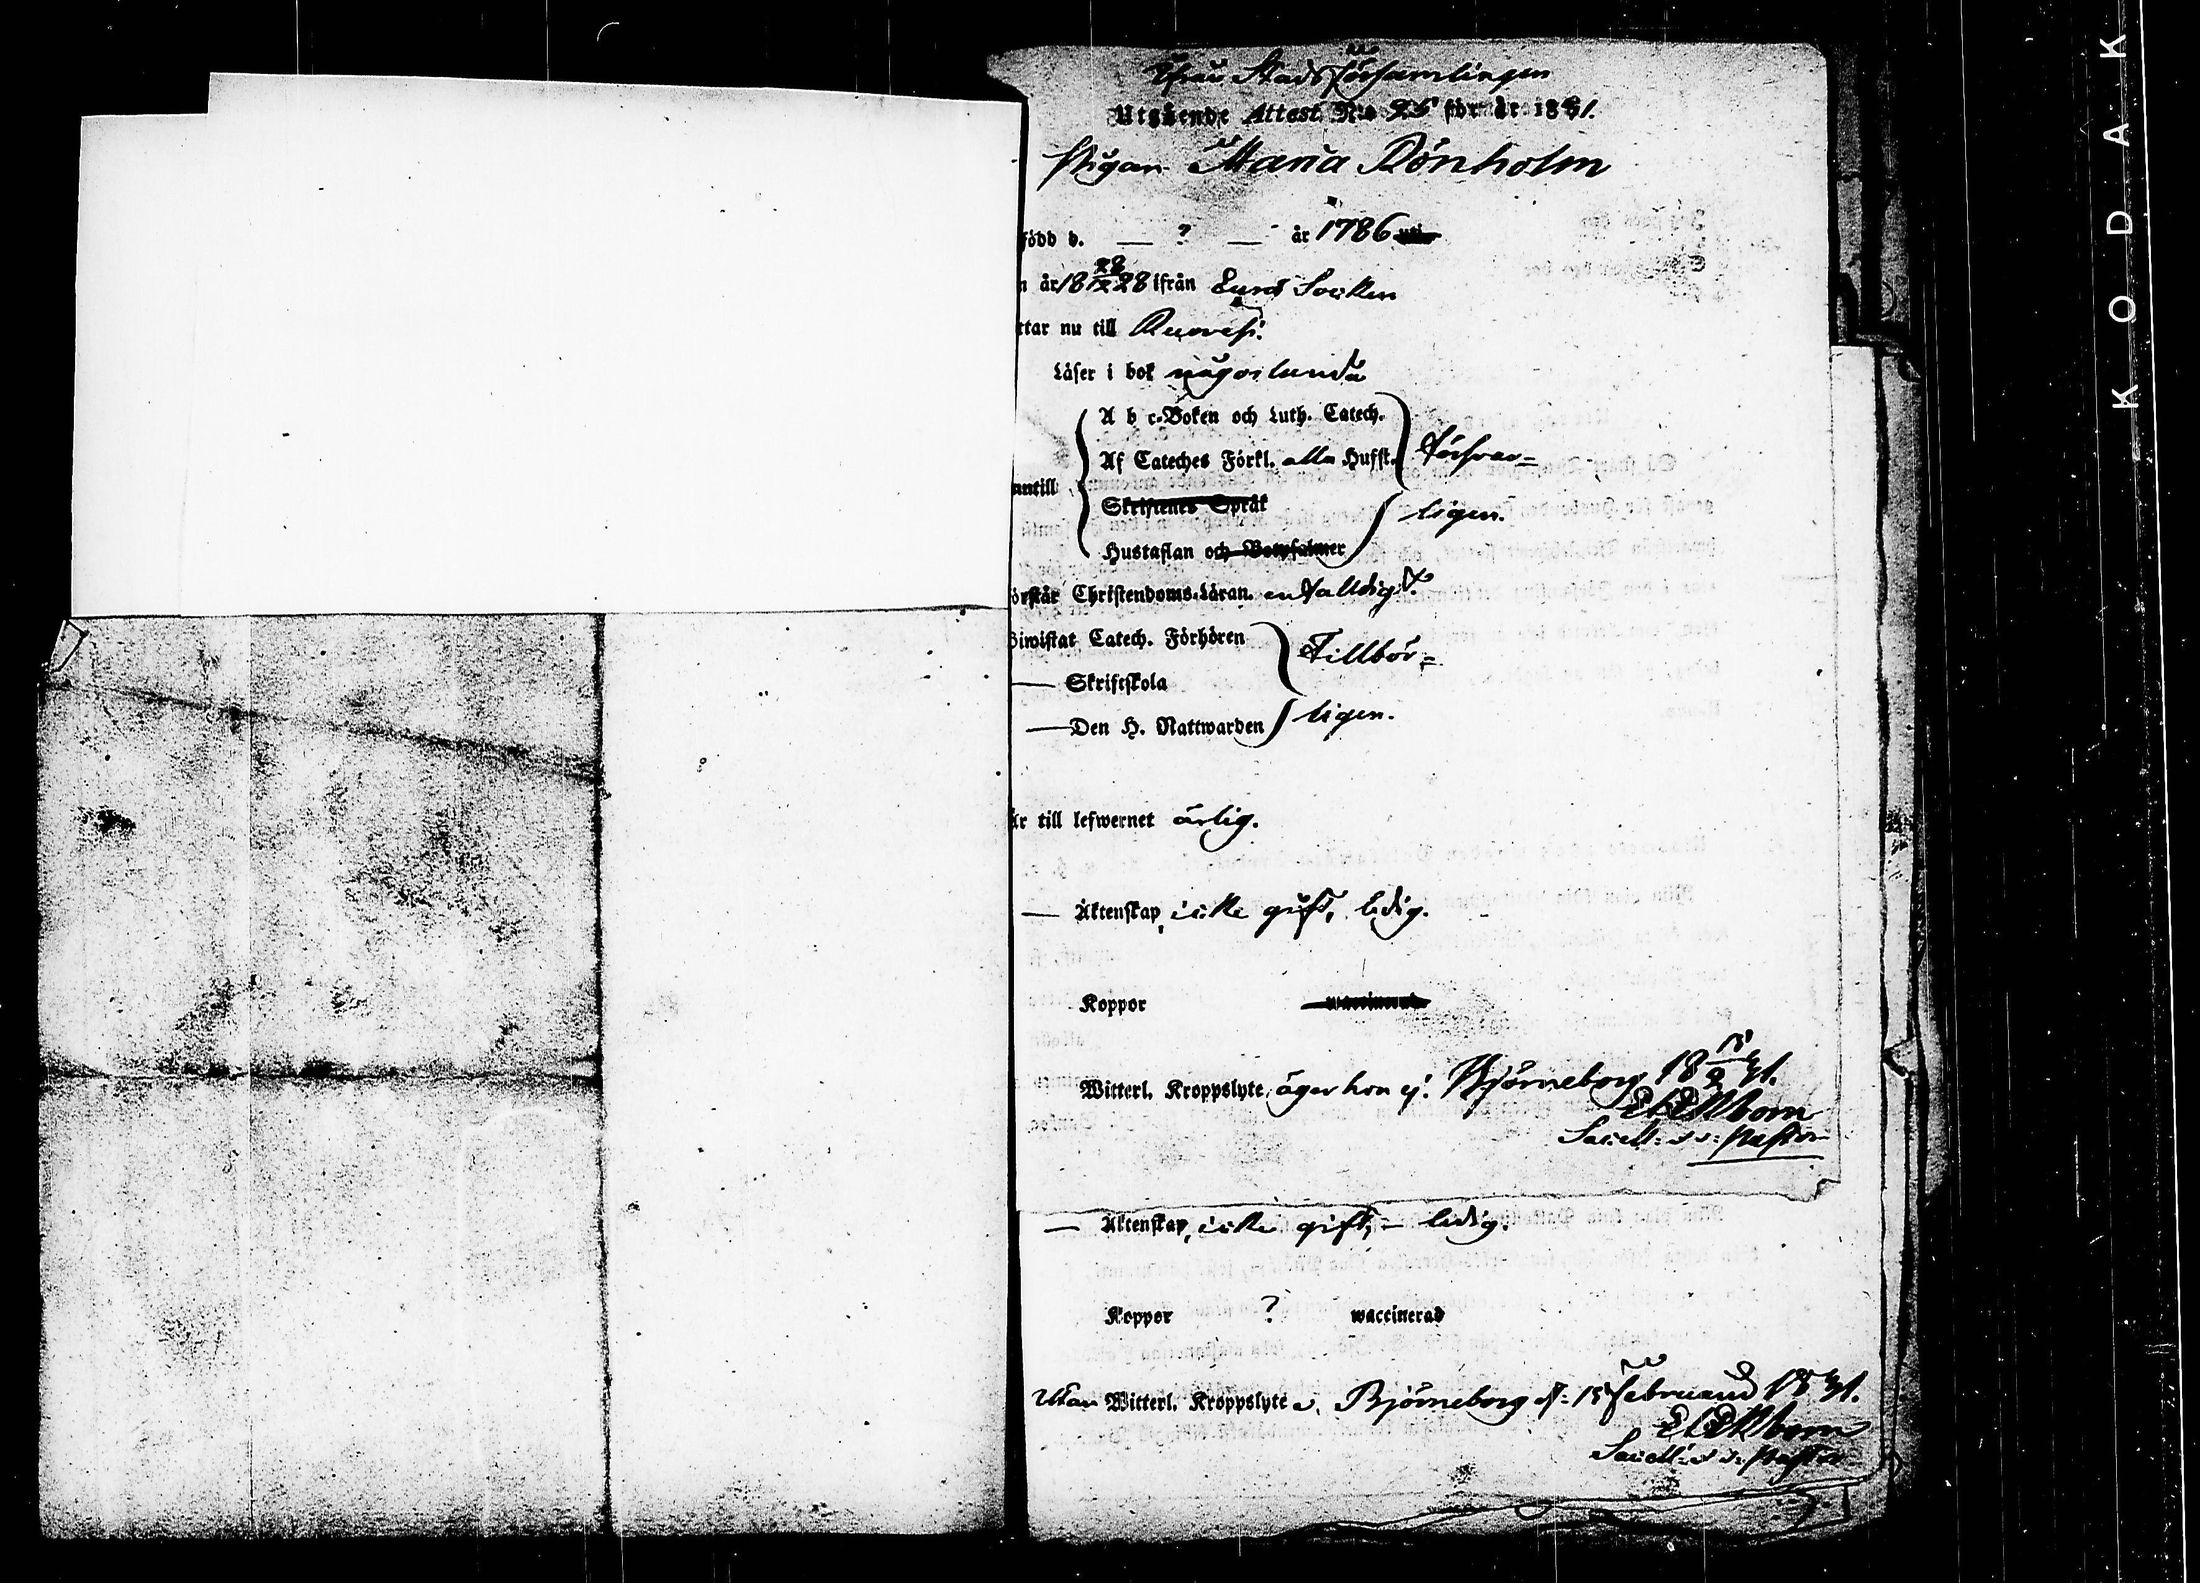 ifrån Stadsförsamlingen
Utgående Attest N:o 25 för år 1831.
Pigan Maria Rönholm
född d. — ? — år 1786
n år 18 28/12 28 ifrån Eura Socken
ttar nu till Ruovesi.
Läser i bok någorlunda
A b c-Boken och Luth. Catech.
Af Cateches Förkl. alla Hufst. försvar=
anntill
Skriftenes Språk
ligen.
Hustaflan och Botpsalmer
örstår Christendoms-Läran. enfaldigt.
Biwistat Catech. Förhören Tillbör=
— Skriftskola
— Den H. Nattwarden ligen.
är till lefwernet ärlig.
— Äktenskap, icke gift, ledig.
Koppor waccinerad
Witterl. Kroppslyte, äger hon ej. Björneborg 18 15/2 31.
Sacell: v: Pastor
— Äktenskap, icke gift, – ledig.
Koppor ? waccinerad
Utan Witterl. Kroppslyte. Björneborg d: 15 Februarii 1831.
Sacell: v: Pastor
KODAK